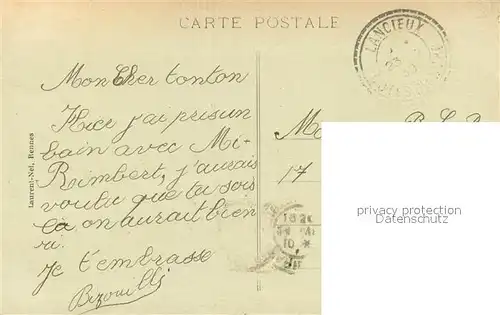 CARTE POSTALE
LANCIEUX
Mon Cher tonton
Hier j'ai pris un
bain avec Mr
Rimbert, j'aurais
voulu que tu sois
là on aurait bien
ri.
Je t'embrasse
Laurent-Nel, Rennes
17
privacy protection
Datenschutz